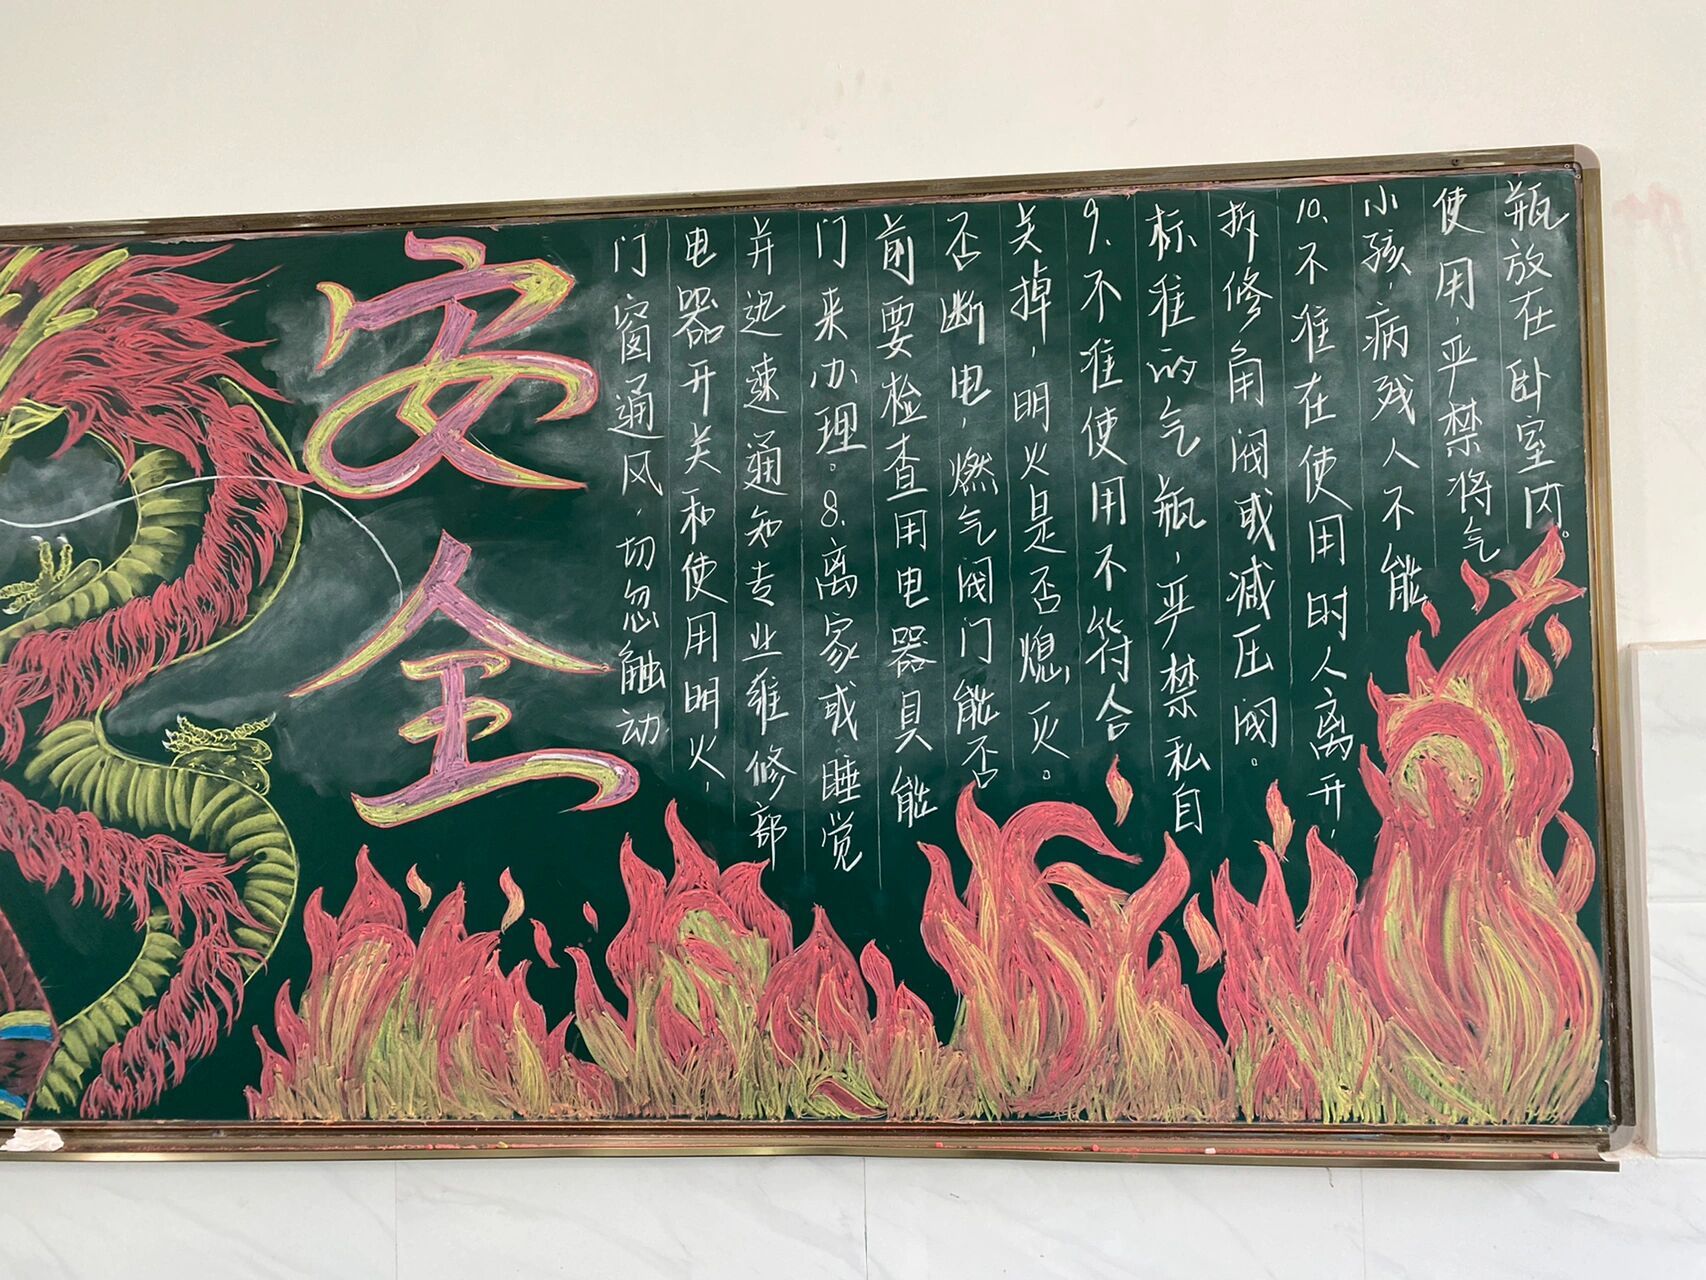 安全
门窗通风，切忽触动
电器开关和使用明火，
并迅速通知专业维修部
门来办理。8、离家或睡觉
前要检查用电器具能
否断电，燃气阀门能否
关掉，明火是否熄灭。
9、不准使用不符合
标准的气瓶，严禁私自
拆修角阀或减压阀。
10、不准在使用时人离开，
小孩、病残人不能
使用，严禁将气
瓶放在卧室内。